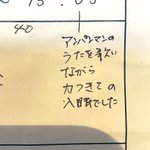 15:05
40
アンパンマンの
うたを歌い
ながら
力つきての
入眠でした